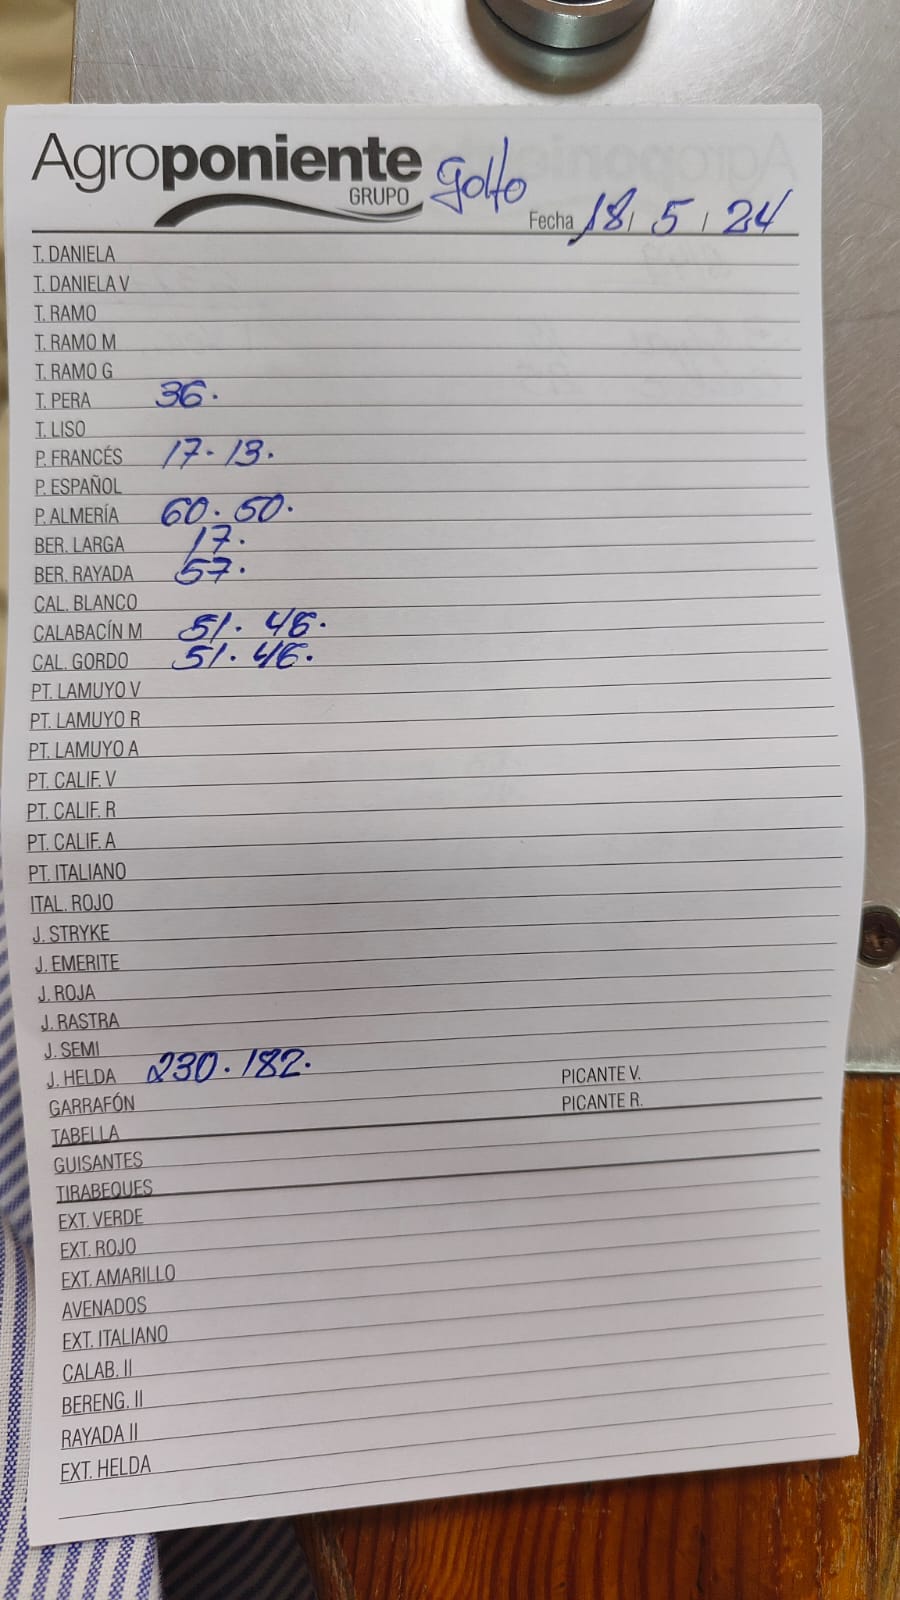 Agroponiente
GRUPO
Golfo
Fecha 18/ 5 / 24
T. DANIELA
T. DANIELA V
T. RAMO
T. RAMO M
T. RAMO G
T. PERA 36.
T. LISO
P. FRANCÉS 17. 13.
P. ESPAÑOL
P. ALMERÍA 60. 50.
BER. LARGA 17.
BER. RAYADA 57.
CAL. BLANCO
CALABACÍN M 51. 46.
CAL. GORDO 51. 46.
PT. LAMUYO V
PT. LAMUYO R
PT. LAMUYO A
PT. CALIF. V
PT. CALIF. R
PT. CALIF. A
PT. ITALIANO
ITAL. ROJO
J. STRYKE
J. EMERITE
J. ROJA
J. RASTRA
J. SEMI
J. HELDA 230. 182. PICANTE V.
GARRAFÓN PICANTE R.
TABELLA
GUISANTES
TIRABEQUES
EXT. VERDE
EXT. ROJO
EXT. AMARILLO
AVENADOS
EXT. ITALIANO
CALAB. II
BERENG. II
RAYADA II
EXT. HELDA